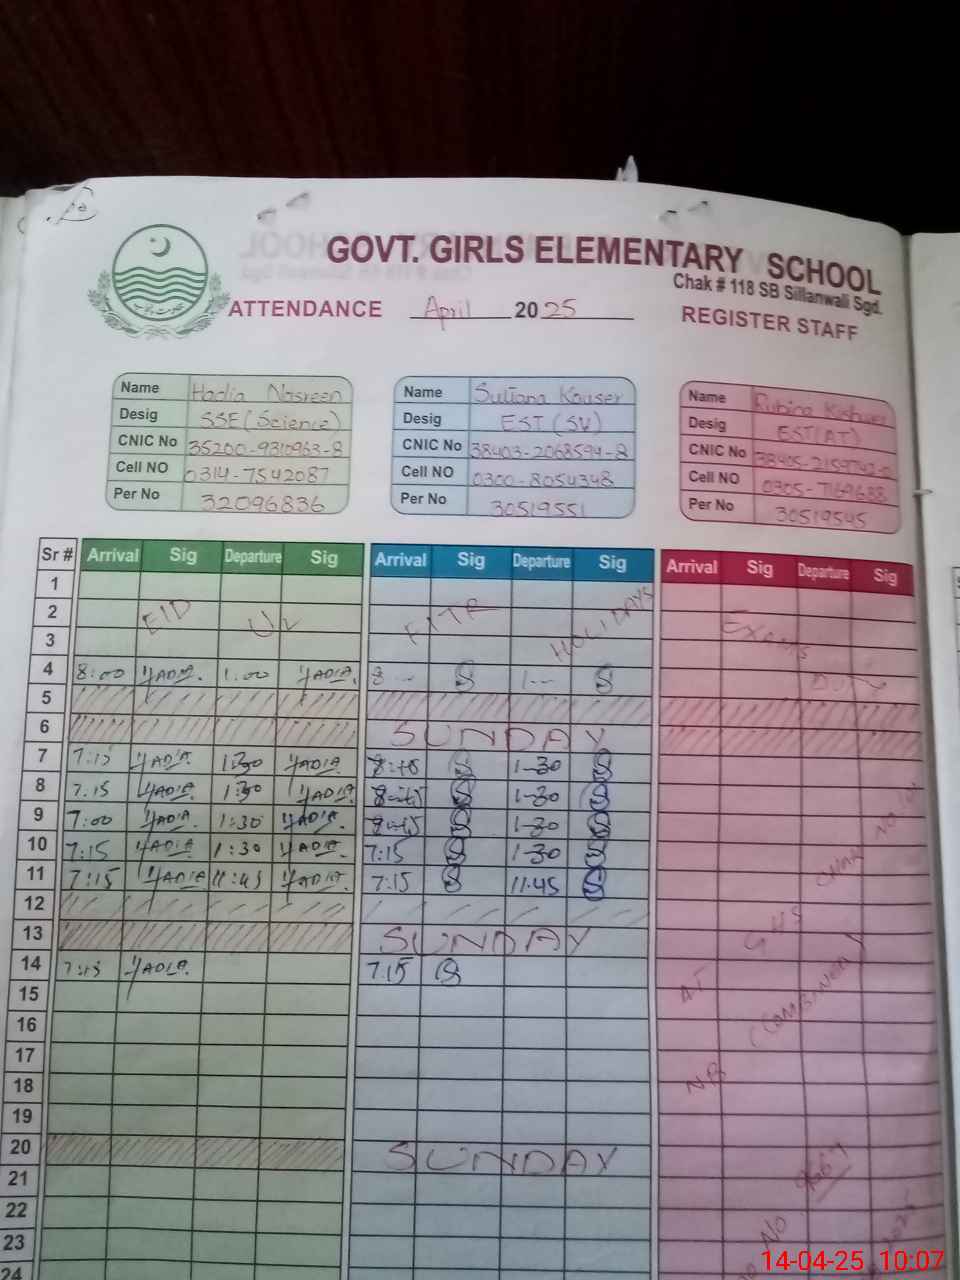 GOVT. GIRLS ELEMENTARY SCHOOL
Chak # 118 SB Sillanwali Sgd.
ATTENDANCE April 2025 REGISTER STAFF
Name Hadia Nasreen
Desig SSE (Science)
CNIC No 35200-9310963-8
Cell NO 0314-7542087
Per No 32096836
Name Sultana Kouser
Desig EST (SV)
CNIC No 38403-2068594-8
Cell NO 0300-8054348
Per No 30519551
Name Rubina
Desig EST(AT)
CNIC No
Cell NO 0305-7169688
Per No 30519545
Sr # Arrival Sig Departure Sig Arrival Sig Departure Sig Arrival Sig Departure Sig
1
2 EID UL FITR HOLIDAYS EXAMS
3
4 8:00 HADIA. 1:00 HADIA. 8-- S 1-- S DUTY
5
6 SUNDAY
7 7:15 HADIA 1:30 HADIA S 1-30 S
8 7:15 HADIA 1:30 HADIA S 1-30 S
9 7:00 HADIA 1:30 HADIA. S 1-30 S
10 7:15 HADIA 1:30 HADIA. 7:15 S 1-30 S
11 7:15 HADIA 11:45 HADIA. 7:15 S 11:45 S
12
13 SUNDAY
14 7:15 HADIA. 7:15 S
15
16
17
18
19
20 SUNDAY
21
22
23
24
AT GHS CHAK NO.
NB (COMBINED)
NO
14-04-25 10:07